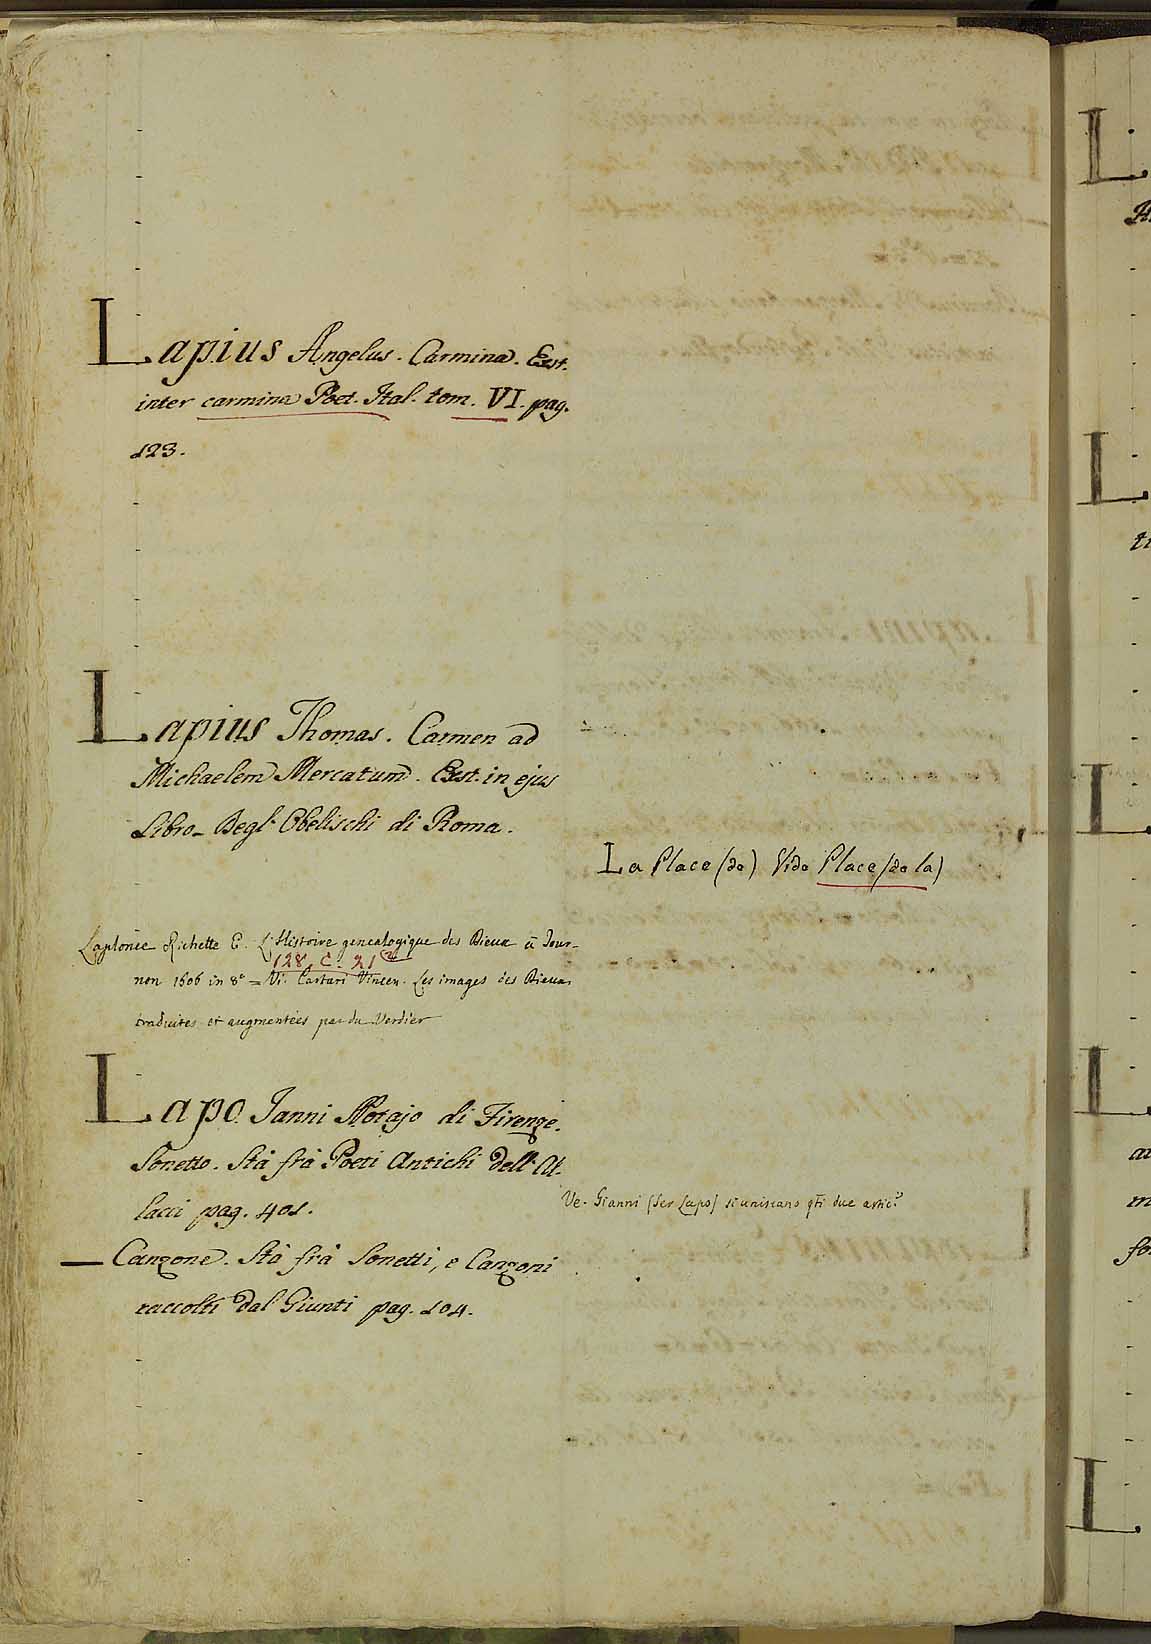 Lapius Angelus. Carmina. Ext.
inter carmina Poet. Ital. tom. VI. pag.
123.
Lapius Thomas. Carmen ad
Michaelem Mercatum. Ext. in ejus
Libro Degl' Obelischi di Roma.
La Place (de) Vide Place (de la)
Laplonce Richette E. L'Histoire genealogique des Dieux à Tour-
128. C. 21
non 1606 in 8° = Vi. Cartari Vincen. Les images des Dieux
traduites et augmentées par du Verdier
Lapo Janni Notajo di Firenze.
Sonetto. Stà frà Poeti Antichi dell' Al-
lacci pag. 401.
Ve. Gianni (Ser Lapo) si uniscano qti due artic.i
— Canzone. Stà frà Sonetti, e Canzoni
raccolti dal Giunti pag. 104.